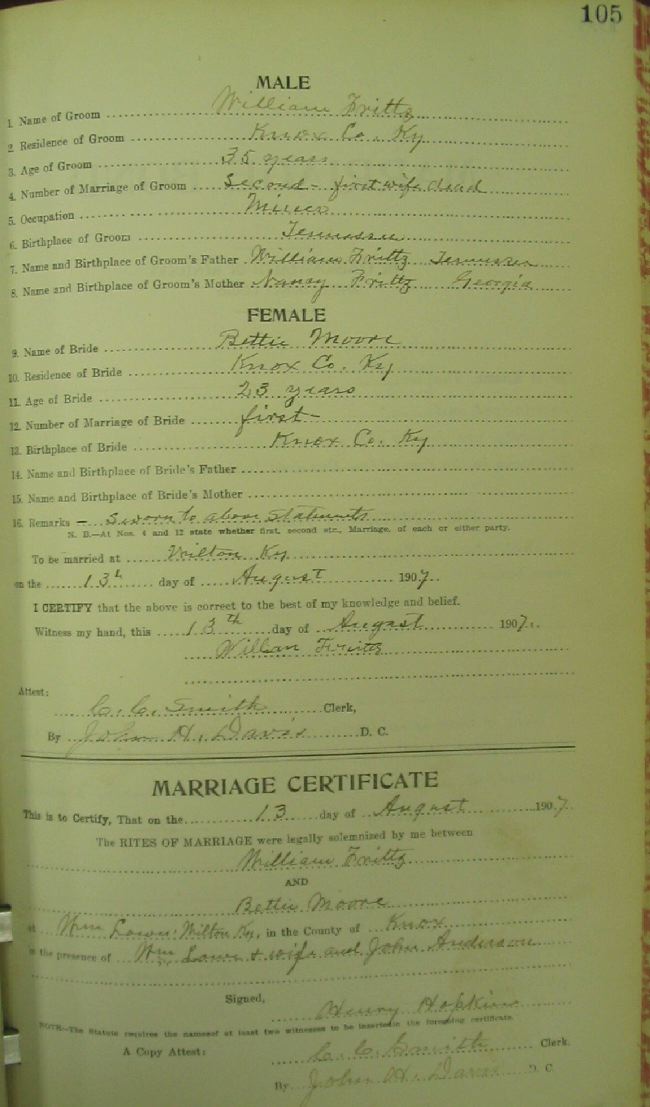 105
MALE
1. Name of Groom William Frittz
2. Residence of Groom Knox Co. Ky
3. Age of Groom 35 years
4. Number of Marriage of Groom Second - first wife dead
5. Occupation Miner
6. Birthplace of Groom Tennessee
7. Name and Birthplace of Groom's Father William Frittz Tennessee
8. Name and Birthplace of Groom's Mother Nancy Frittz Georgia
FEMALE
9. Name of Bride Bettie Moore
10. Residence of Bride Knox Co. Ky
11. Age of Bride 23 years
12. Number of Marriage of Bride first -
13. Birthplace of Bride Knox Co. Ky
14. Name and Birthplace of Bride's Father
15. Name and Birthplace of Bride's Mother
16. Remarks - Sworn to above Statements
N. B.—At Nos. 4 and 12 state whether first, second etc., Marriage, of each or either party.
To be married at Wilton Ky
on the 13th day of August 1907.
I CERTIFY that the above is correct to the best of my knowledge and belief.
Witness my hand, this 13th day of August 1907.
Frittz
Attest:
C. C. Smith Clerk,
By John H. Davis D. C.
MARRIAGE CERTIFICATE
This is to Certify, That on the 13 day of August 1907
The RITES OF MARRIAGE were legally solemnized by me between
William Frittz
AND
Bettie Moore
at Wm Wilton Ky, in the County of Knox
in the presence of Wm & wife and John Anderson
Signed, Henry Hopkins
NOTE—The Statute requires the names of at least two witnesses to be inserted in the foregoing certificate.
A Copy Attest: C. C. Smith Clerk.
By John H. Davis D. C.